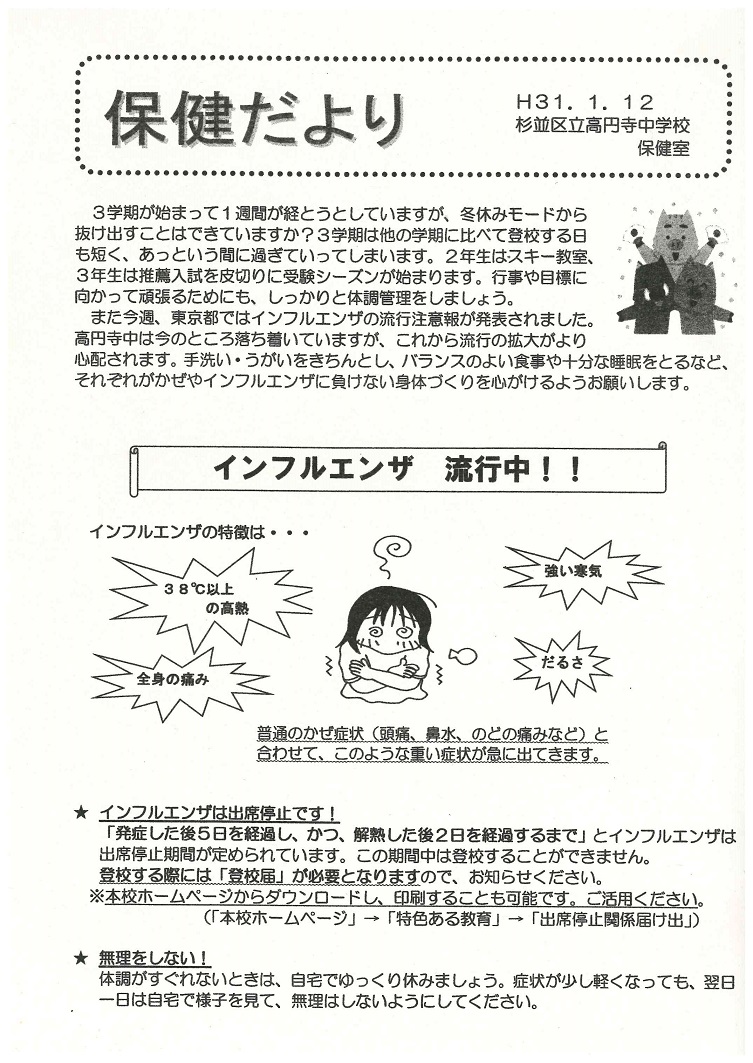 保健だより
H31．1．12
杉並区立高円寺中学校
保健室
３学期が始まって１週間が経とうとしていますが、冬休みモードから
抜け出すことはできていますか？３学期は他の学期に比べて登校する日
も短く、あっという間に過ぎていってしまいます。２年生はスキー教室、
３年生は推薦入試を皮切りに受験シーズンが始まります。行事や目標に
向かって頑張るためにも、しっかりと体調管理をしましょう。
また今週、東京都ではインフルエンザの流行注意報が発表されました。
高円寺中は今のところ落ち着いていますが、これから流行の拡大がより
心配されます。手洗い・うがいをきちんとし、バランスのよい食事や十分な睡眠をとるなど、
それぞれがかぜやインフルエンザに負けない身体づくりを心がけるようお願いします。
インフルエンザ　流行中！！
インフルエンザの特徴は・・・
３８℃以上
の高熱
強い寒気
全身の痛み
だるさ
普通のかぜ症状（頭痛、鼻水、のどの痛みなど）と
合わせて、このような重い症状が急に出てきます。
★ インフルエンザは出席停止です！
「発症した後５日を経過し、かつ、解熱した後２日を経過するまで」とインフルエンザは
出席停止期間が定められています。この期間中は登校することができません。
登校する際には「登校届」が必要となりますので、お知らせください。
※本校ホームページからダウンロードし、印刷することも可能です。ご活用ください。
（「本校ホームページ」→「特色ある教育」→「出席停止関係届け出」）
★ 無理をしない！
体調がすぐれないときは、自宅でゆっくり休みましょう。症状が少し軽くなっても、翌日
一日は自宅で様子を見て、無理はしないようにしてください。